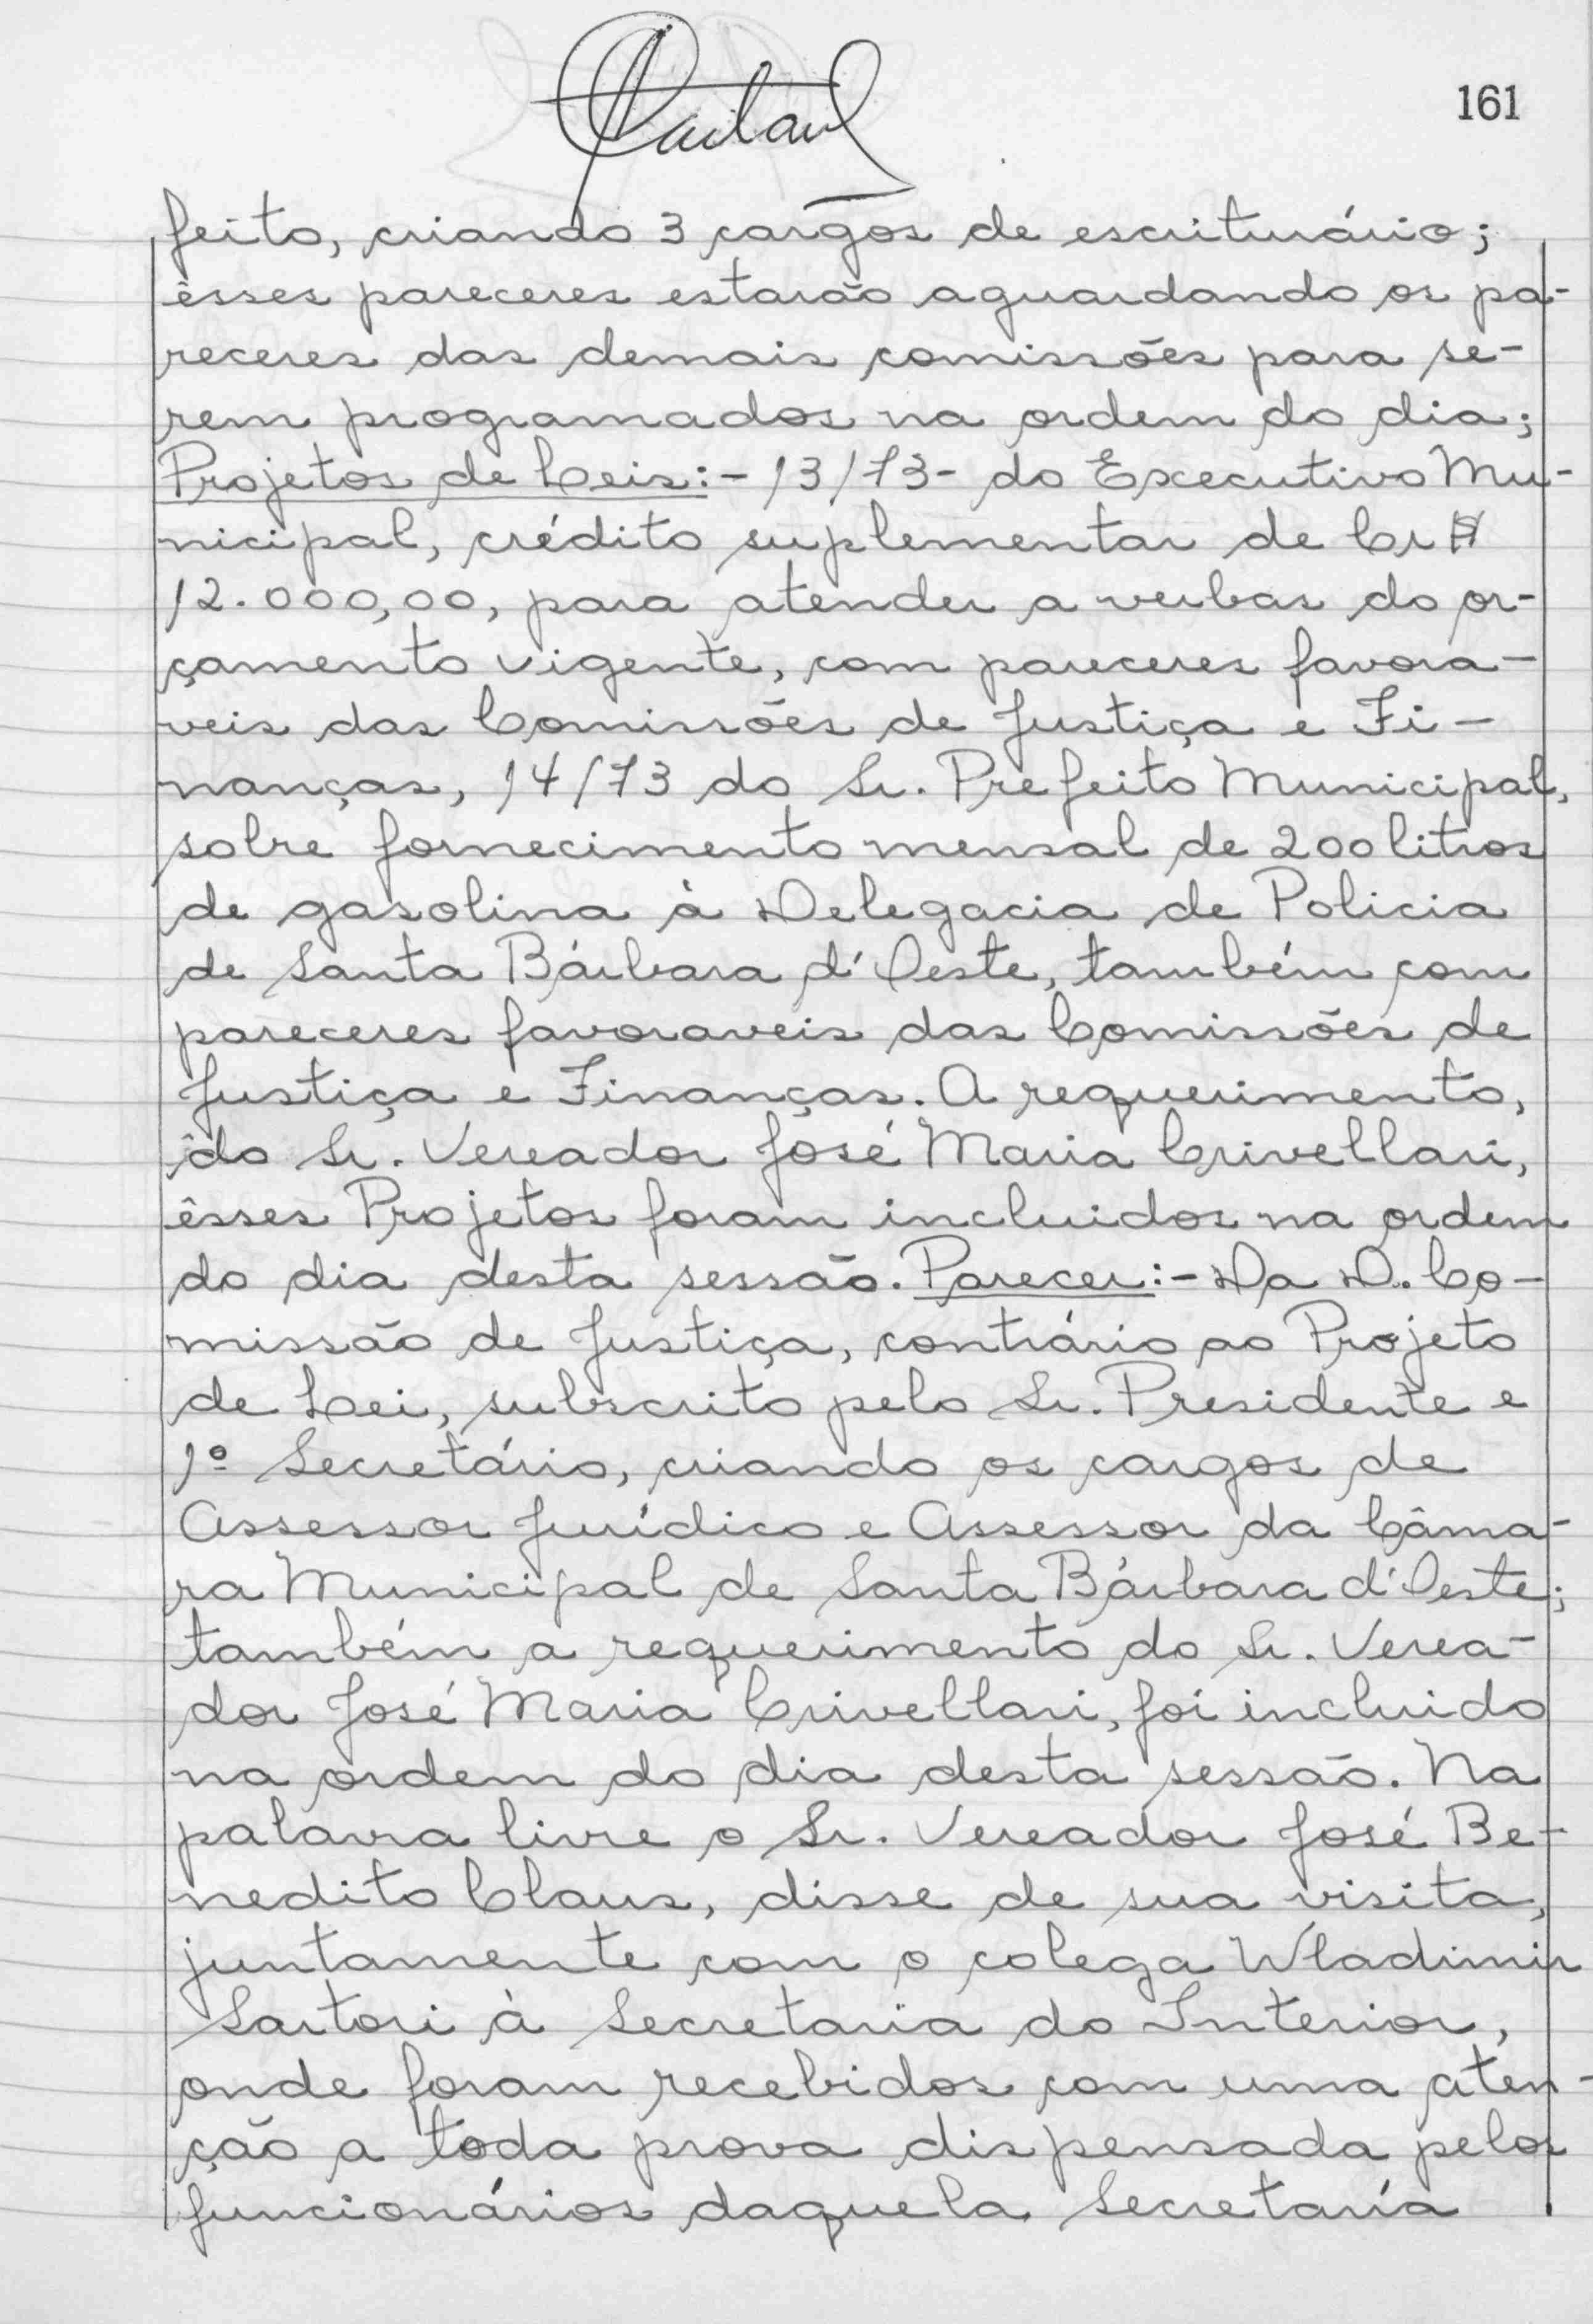 161
feito, criando 3 cargos de escriturário;
êsses pareceres estarão aguardando os pa-
receres das demais comissões para se-
rem programados na ordem do dia;
Projetos de Leis:- 13/73- do Executivo Mu-
nicipal, crédito suplementar de Cr$
12.000,00, para atender a verbas do or-
çamento vigente, com pareceres favora-
veis das Comissões de Justiça e Fi-
nanças, 14/73 do Sr. Prefeito Municipal,
sobre fornecimento mensal de 200 litros
de gasolina à Delegacia de Policia
de Santa Bárbara d'Oeste, também com
pareceres favoraveis das Comissões de
Justiça e Finanças. A requerimento,
do Sr. Vereador José Maria Crivellari,
êsses Projetos foram incluidos na ordem
do dia desta sessão. Parecer:- Da D. Co-
missão de Justiça, contrário ao Projeto
de Lei, subscrito pelo Sr. Presidente e
1º Secretário, criando os cargos de
Assessor Jurídico e Assessor da Câma-
ra Municipal de Santa Bárbara d'Oeste;
também a requerimento do Sr. Verea-
dor José Maria Crivellari, foi incluido
na ordem do dia desta sessão. Na
palavra livre o Sr. Vereador José Be-
nedito Claus, disse de sua visita,
juntamente com o colega Wladimir
Sartori à Secretaria do Interior,
onde foram recebidos com uma aten-
ção a toda prova dispensada pelos
funcionários daquela Secretaría